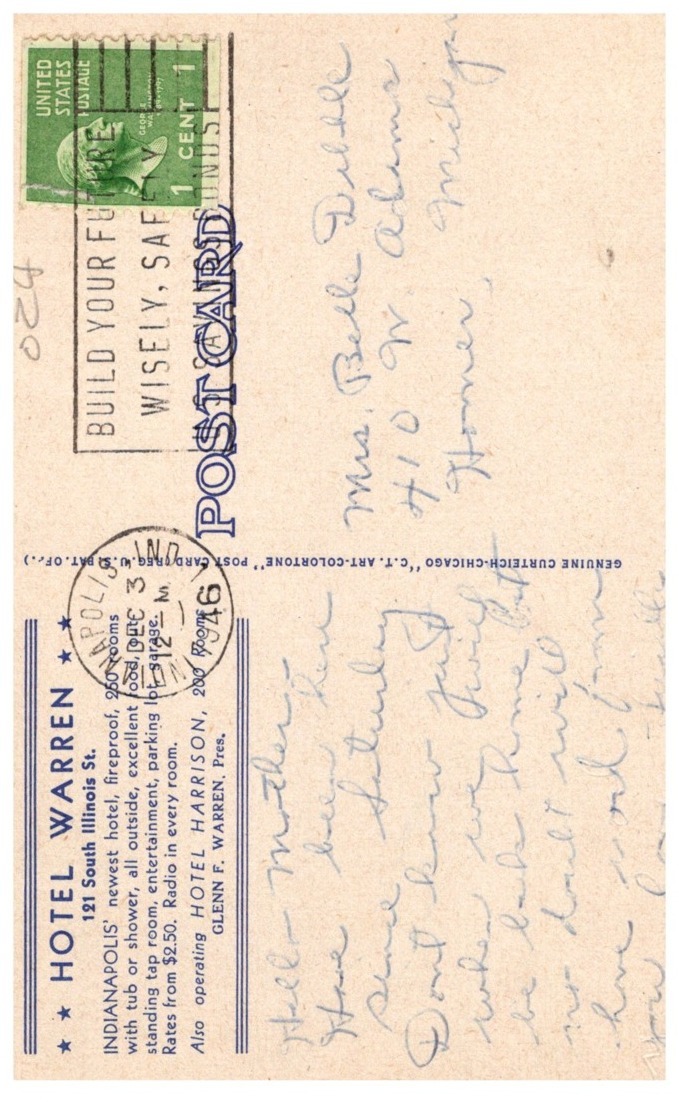 ★ ★ HOTEL WARREN ★ ★
121 South Illinois St.
INDIANAPOLIS' newest hotel, fireproof, 250 rooms
with tub or shower, all outside, excellent food, out-
standing tap room, entertainment, parking lot, garage.
Rates from $2.50. Radio in every room.
Also operating HOTEL HARRISON, 200 Rooms
GLENN F. WARREN, Pres.
Hello Mother -
Have been here
since Saturday
Don't know just
when we will
be back home but
no doubt will
have word from
you
GENUINE CURTEICH-CHICAGO "C.T. ART-COLORTONE" POST CARD (REG. U.S. PAT. OF.)
INDIANAPOLIS, IND.
DEC 3
12 M
1946
BUILD YOUR FUTURE
WISELY, SAFELY
U.S. SAVINGS BONDS
UNITED
STATES
POSTAGE
GEORGE
WASHINGTON
1 CENT 1
024
POST CARD
Mrs. Belle Dibble
410 W. Adams
Homer,
Michigan